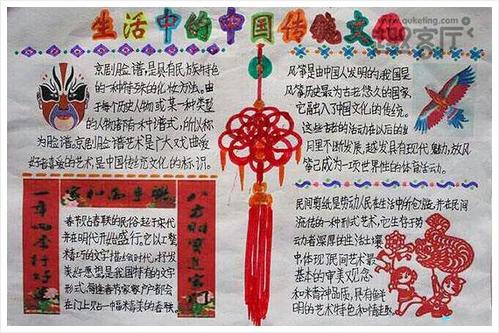 生活中的中国传统文
www.quketing.com
客厅
京剧脸谱,是具有民族特色
的一种特殊的化妆方法。由
于每个历史人物或某一种类型
的人物都有一种谱式,所以称
为脸谱。京剧脸谱艺术是广大戏曲爱
好者喜爱的艺术是中国传统文化的标识。
风筝是由中国人发明的,我国是
风筝历史最为古老悠久的国家,
它融入了中国文化的传统。
月里不断发展,越发具有现代魅力,放风
筝已成为一项世界性的体育活动。
家和万事兴
一年四季行好运
八方财宝进
春节贴春联的民俗起于宋代
并在明代开始盛行,它以工整
精巧的文字描绘时代,抒发
美好愿望是我国特有的文字
形式,每逢春节家家户户都会
在门上贴一幅精美的春联。
民间剪纸是劳动人民在生活中创作,并在民间
流传的一种形式艺术,它生存于劳
动者深厚的生活土壤
中体现了民间艺术最
基本的审美观念
和精神品质,具有鲜
明的艺术特色和情趣。